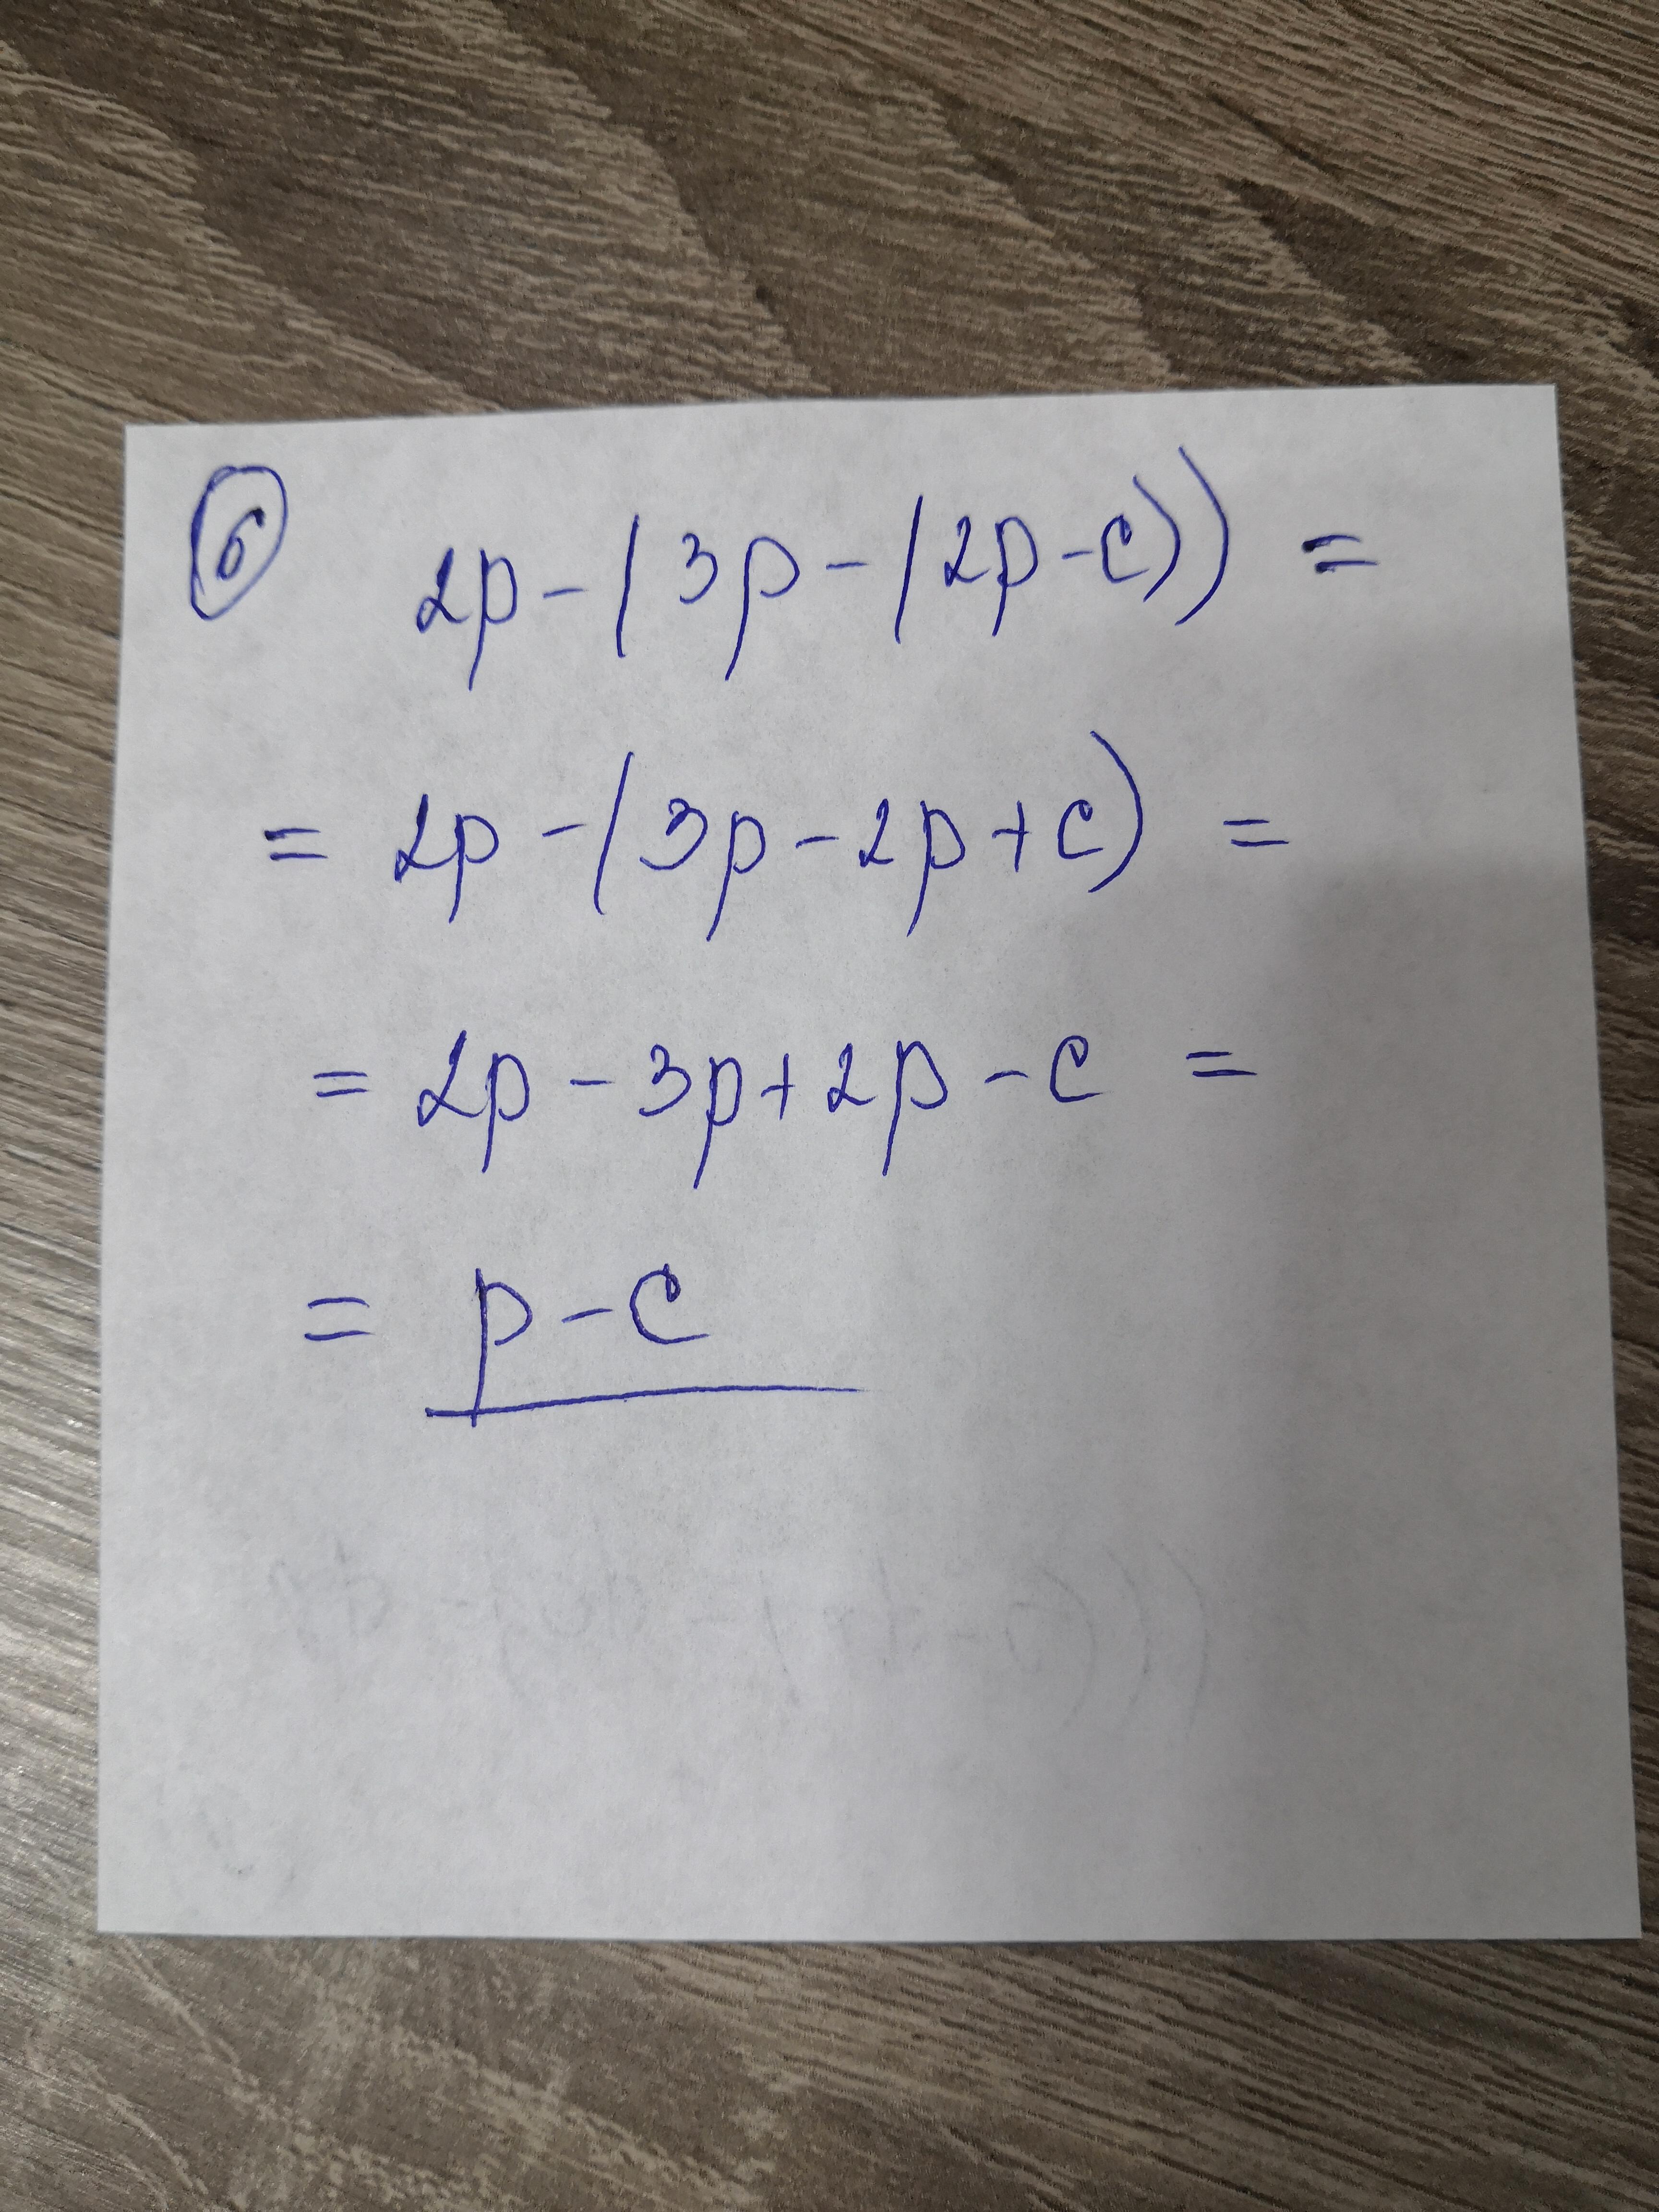 6 2p-(3p-(2p-c))=
= 2p-(3p-2p+c) =
= 2p-3p+2p-c =
= p-c